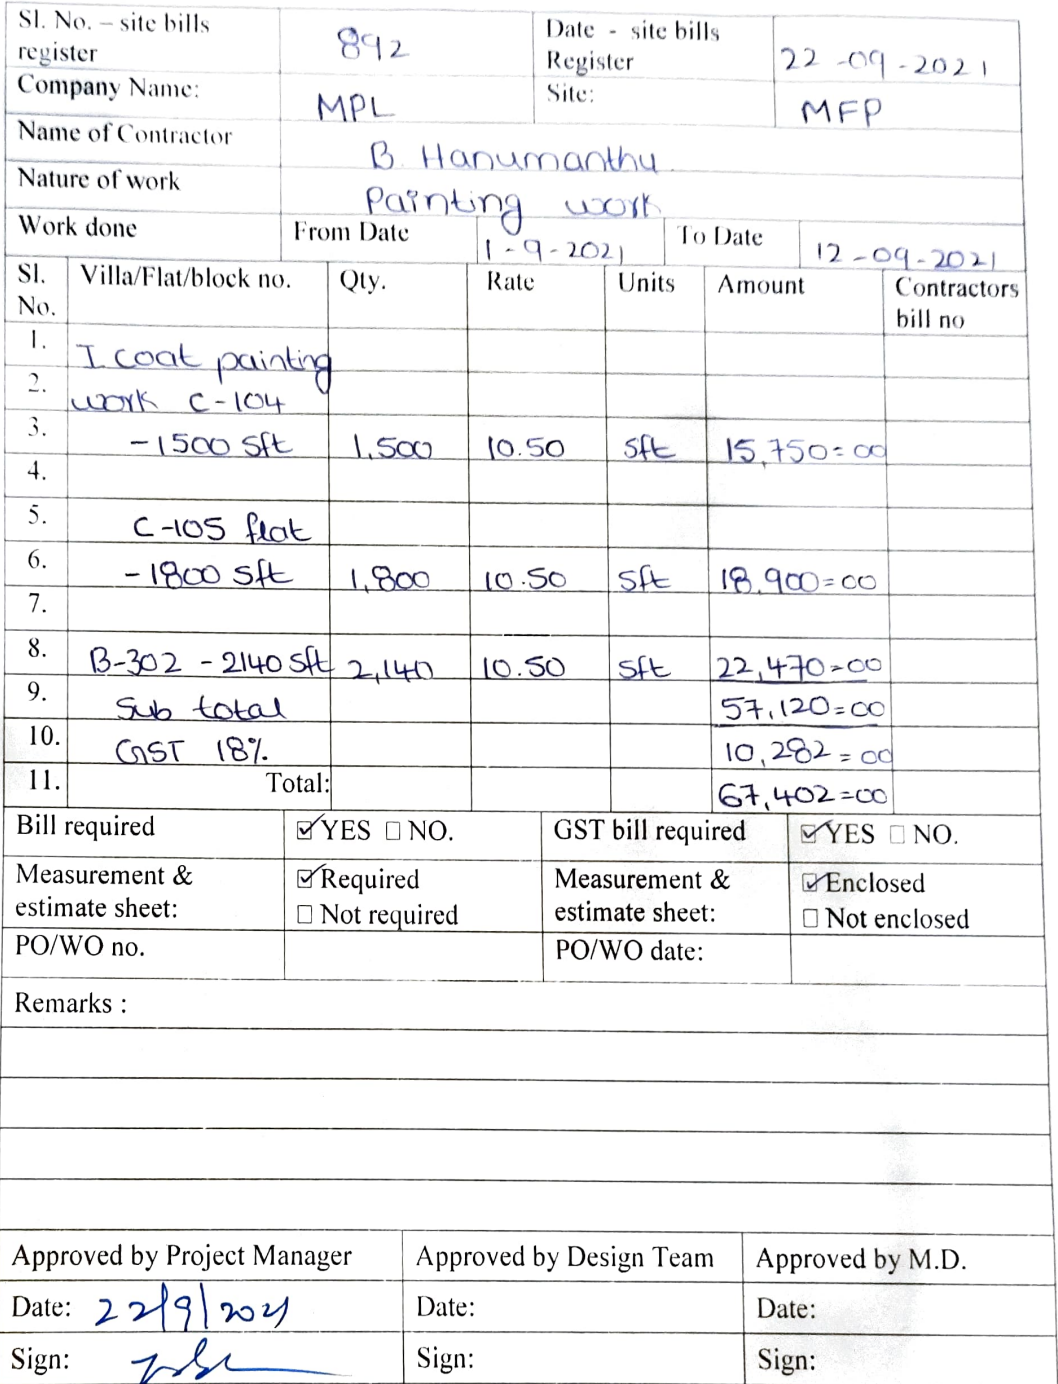 Sl. No. – site bills register 892 Date - site bills Register 22-09-2021
Company Name: MPL Site: MFP
Name of Contractor B. Hanumanthu
Nature of work Painting work
Work done From Date 1-9-2021 To Date 12-09-2021
Sl. No. Villa/Flat/block no. Qty. Rate Units Amount Contractors bill no
1. I coat painting
2. work C-104
3. -1500 Sft 1,500 10.50 Sft 15,750=00
4.
5. C-105 flat
6. -1800 Sft 1,800 10.50 Sft 18,900=00
7.
8. B-302 - 2140 Sft 2,140 10.50 Sft 22,470=00
9. Sub total 57,120=00
10. GST 18% 10,282=00
11. Total: 67,402=00
Bill required ☑YES ☐ NO. GST bill required ☑YES ☐ NO.
Measurement & estimate sheet: ☑Required ☐ Not required Measurement & estimate sheet: ☑Enclosed ☐ Not enclosed
PO/WO no. PO/WO date:
Remarks :
Approved by Project Manager Approved by Design Team Approved by M.D.
Date: 22/9/2021 Date: Date:
Sign: Sign: Sign: